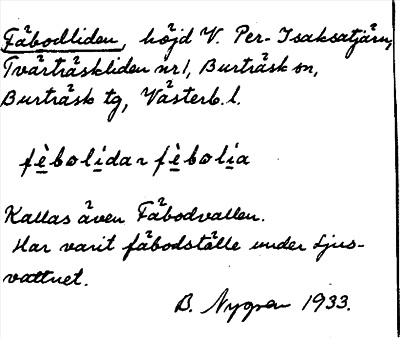 Fäbodliden, höjd V. Per-Isaksatjärn,
Tvärträskliden nr1, Burträsk sn,
Burträsk tg, Västerb. l.
fèbolìdaɴ fèbolìa
Kallas även Fäbodvallen.
Har varit fäbodställe under Ljus-
vattnet.
B. Nygren 1933.